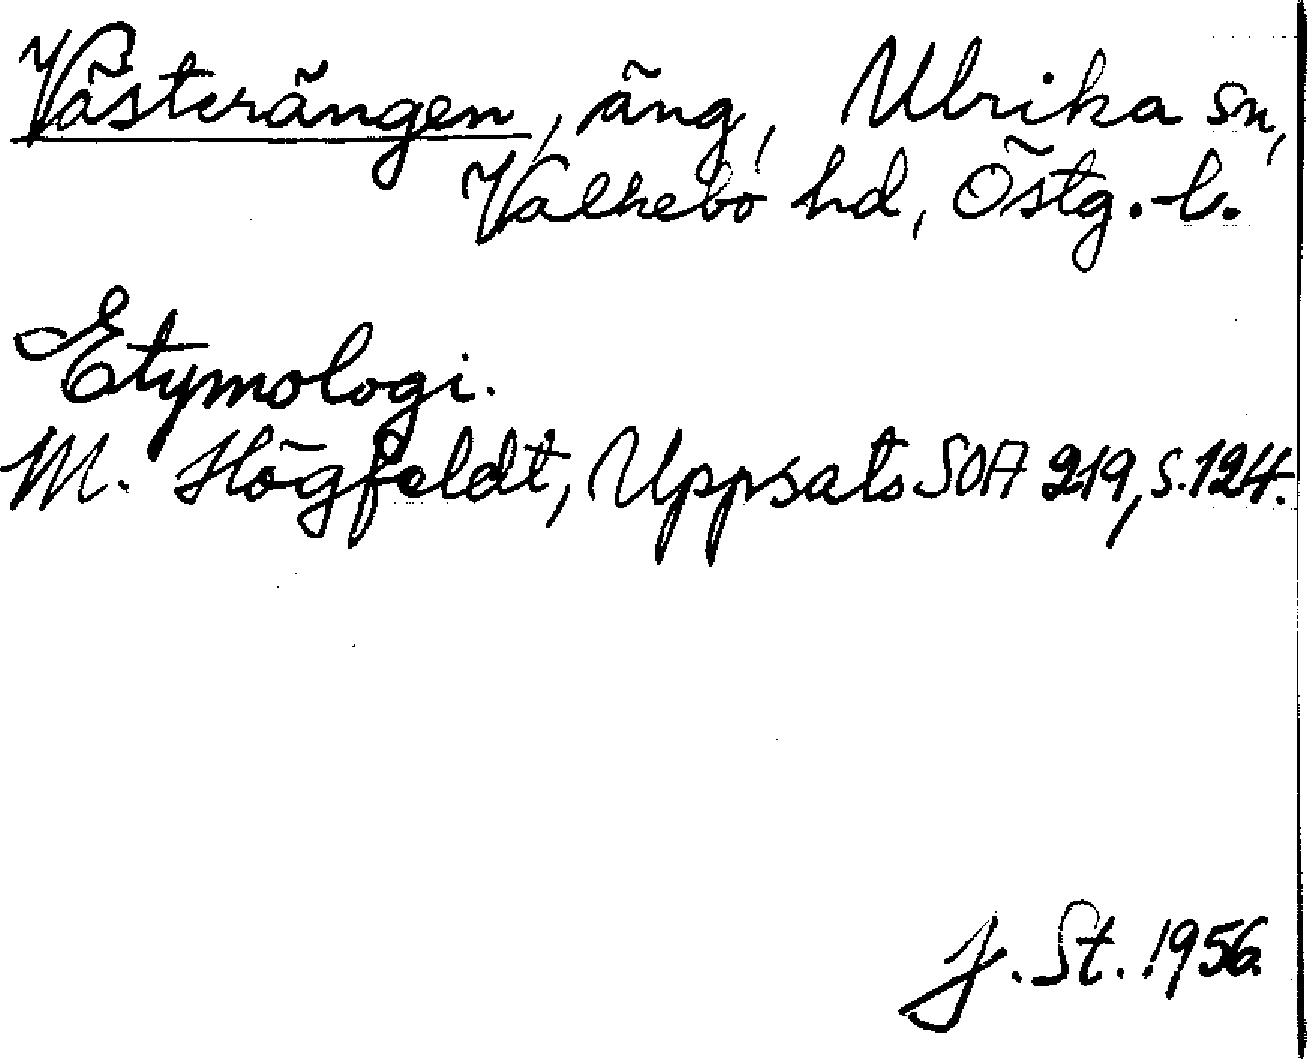 Västerängen, äng, Ulrika sn,
Valkebo hd, Östg. l.
Etymologi.
M. Högfeldt, Uppsats SOA 219, s. 124.
J. St. 1956.